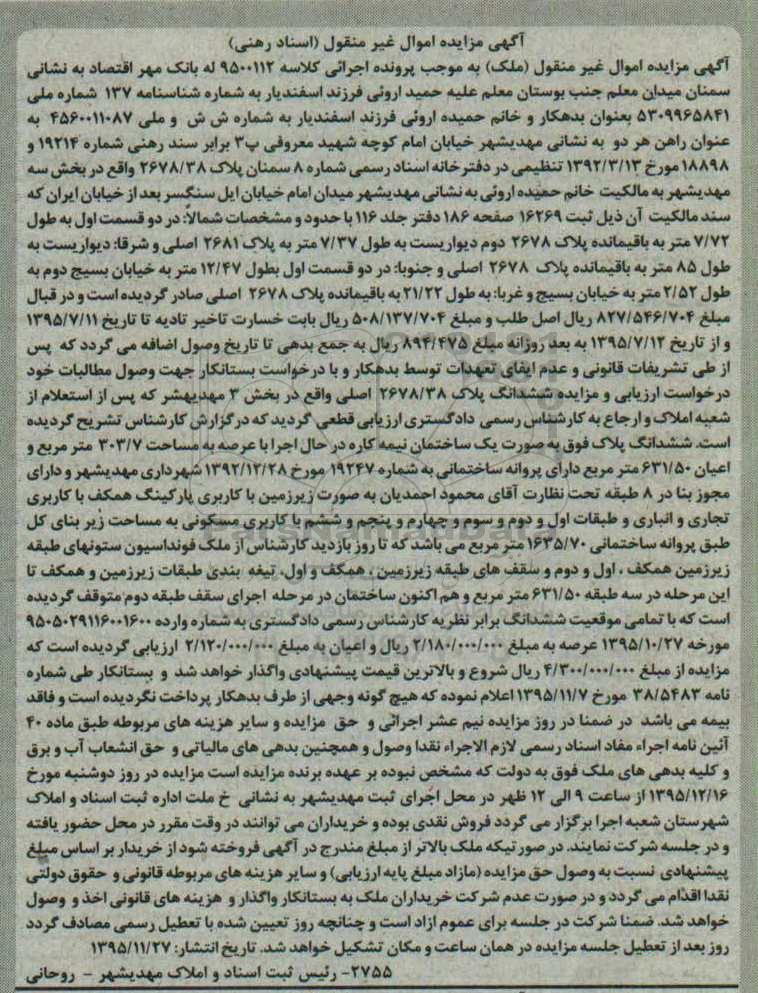 آگهی مزایده اموال غیر منقول (اسناد رهنی)
آگهی مزایده اموال غیر منقول (ملک) به موجب پرونده اجرائی کلاسه ۹۵۰۰۱۱۲ له بانک مهر اقتصاد به نشانی
سمنان میدان معلم جنب بوستان معلم علیه حمید اروئی فرزند اسفندیار به شماره شناسنامه ۱۳۷ شماره ملی
۵۳۰۹۹۶۵۸۴۱ بعنوان بدهکار و خانم حمیده اروئی فرزند اسفندیار به شماره ش ش و ملی ۴۵۶۰۰۱۱۰۸۷ به
عنوان راهن هر دو به نشانی مهدیشهر خیابان امام کوچه شهید معروفی پ۳ برابر سند رهنی شماره ۱۹۲۱۴ و
۱۸۸۹۸ مورخ ۱۳۹۲/۳/۱۳ تنظیمی در دفترخانه اسناد رسمی شماره ۸ سمنان پلاک ۲۶۷۸/۳۸ واقع در بخش سه
مهدیشهر به مالکیت خانم حمیده اروئی به نشانی مهدیشهر میدان امام خیابان ایل سنگسر بعد از خیابان ایران که
سند مالکیت آن ذیل ثبت ۱۶۲۶۹ صفحه ۱۸۶ دفتر جلد ۱۱۶ با حدود و مشخصات شمالاً: در دو قسمت اول به طول
۷/۷۲ متر به باقیمانده پلاک ۲۶۷۸ دوم دیواریست به طول ۷/۳۷ متر به پلاک ۲۶۸۱ اصلی و شرقا: دیواریست به
طول ۸۵ متر به باقیمانده پلاک ۲۶۷۸ اصلی و جنوبا: در دو قسمت اول بطول ۱۲/۴۷ متر به خیابان بسیج دوم به
طول ۲/۵۲ متر به خیابان بسیج و غربا: به طول ۲۱/۲۲ به باقیمانده پلاک ۲۶۷۸ اصلی صادر گردیده است و در قبال
مبلغ ۸۲۷/۵۴۶/۷۰۴ ریال اصل طلب و مبلغ ۵۰۸/۱۳۷/۷۰۴ ریال بابت خسارت تاخیر تادیه تا تاریخ ۱۳۹۵/۷/۱۱
و از تاریخ ۱۳۹۵/۷/۱۲ به بعد روزانه مبلغ ۸۹۴/۴۷۵ ریال به جمع بدهی تا تاریخ وصول اضافه می گردد که پس
از طی تشریفات قانونی و عدم ایفای تعهدات توسط بدهکار و با درخواست بستانکار جهت وصول مطالبات خود
درخواست ارزیابی و مزایده ششدانگ پلاک ۲۶۷۸/۳۸ اصلی واقع در بخش ۳ مهدیشهر که پس از استعلام از
شعبه املاک و ارجاع به کارشناس رسمی دادگستری ارزیابی قطعی گردید که در گزارش کارشناس تشریح گردیده
است. ششدانگ پلاک فوق به صورت یک ساختمان نیمه کاره در حال اجرا با عرصه به مساحت ۳۰۳/۷ متر مربع و
اعیان ۶۳۱/۵۰ متر مربع دارای پروانه ساختمانی به شماره ۱۹۲۴۷ مورخ ۱۳۹۲/۱۲/۲۸ شهرداری مهدیشهر و دارای
مجوز بنا در ۸ طبقه تحت نظارت آقای محمود احمدیان به صورت زیرزمین با کاربری پارکینگ همکف با کاربری
تجاری و انباری و طبقات اول و دوم و سوم و چهارم و پنجم و ششم با کاربری مسکونی به مساحت زیر بنای کل
طبق پروانه ساختمانی ۱۶۳۵/۷۰ متر مربع می باشد که تا روز بازدید کارشناس از ملک فونداسیون ستونهای طبقه
زیرزمین همکف ، اول و دوم و سقف های طبقه زیرزمین ، همکف و اول، تیغه بندی طبقات زیرزمین و همکف تا
این مرحله در سه طبقه ۶۳۱/۵۰ متر مربع و هم اکنون ساختمان در مرحله اجرای سقف طبقه دوم متوقف گردیده
است که با تمامی موقعیت ششدانگ برابر نظریه کارشناس رسمی دادگستری به شماره وارده ۹۵۰۵۰۲۹۱۱۶۰۰۱۶۰۰
مورخه ۱۳۹۵/۱۰/۲۷ عرصه به مبلغ ۲/۱۸۰/۰۰۰/۰۰۰ ریال و اعیان به مبلغ ۲/۱۲۰/۰۰۰/۰۰۰ ارزیابی گردیده است که
مزایده از مبلغ ۴/۳۰۰/۰۰۰/۰۰۰ ریال شروع و بالاترین قیمت پیشنهادی واگذار خواهد شد و بستانکار طی شماره
نامه ۳۸/۵۴۸۳ مورخ ۱۳۹۵/۱۱/۷ اعلام نموده که هیچ گونه وجهی از طرف بدهکار پرداخت نگردیده است و فاقد
بیمه می باشد در ضمنا در روز مزایده نیم عشر اجرائی و حق مزایده و سایر هزینه های مربوطه طبق ماده ۴۰
آئین نامه اجراء مفاد اسناد رسمی لازم الاجراء نقدا وصول و همچنین بدهی های مالیاتی و حق انشعاب آب و برق
و کلیه بدهی های ملک فوق به دولت که مشخص نبوده بر عهده برنده مزایده است مزایده در روز دوشنبه مورخ
۱۳۹۵/۱۲/۱۶ از ساعت ۹ الی ۱۲ ظهر در محل اجرای ثبت مهدیشهر به نشانی خ ملت اداره ثبت اسناد و املاک
شهرستان شعبه اجرا برگزار می گردد فروش نقدی بوده و خریداران می توانند در وقت مقرر در محل حضور یافته
و در جلسه شرکت نمایند. در صورتیکه ملک بالاتر از مبلغ مندرج در آگهی فروخته شود از خریدار بر اساس مبلغ
پیشنهادی نسبت به وصول حق مزایده (مازاد مبلغ پایه ارزیابی) و سایر هزینه های مربوطه قانونی و حقوق دولتی
نقدا اقدام می گردد و در صورت عدم شرکت خریداران ملک به بستانکار واگذار و هزینه های قانونی اخذ و وصول
خواهد شد. ضمنا شرکت در جلسه برای عموم ازاد است و چنانچه روز تعیین شده با تعطیل رسمی مصادف گردد
روز بعد از تعطیل جلسه مزایده در همان ساعت و مکان تشکیل خواهد شد. تاریخ انتشار: ۱۳۹۵/۱۱/۲۷
۲۷۵۵- رئیس ثبت اسناد و املاک مهدیشهر - روحانی